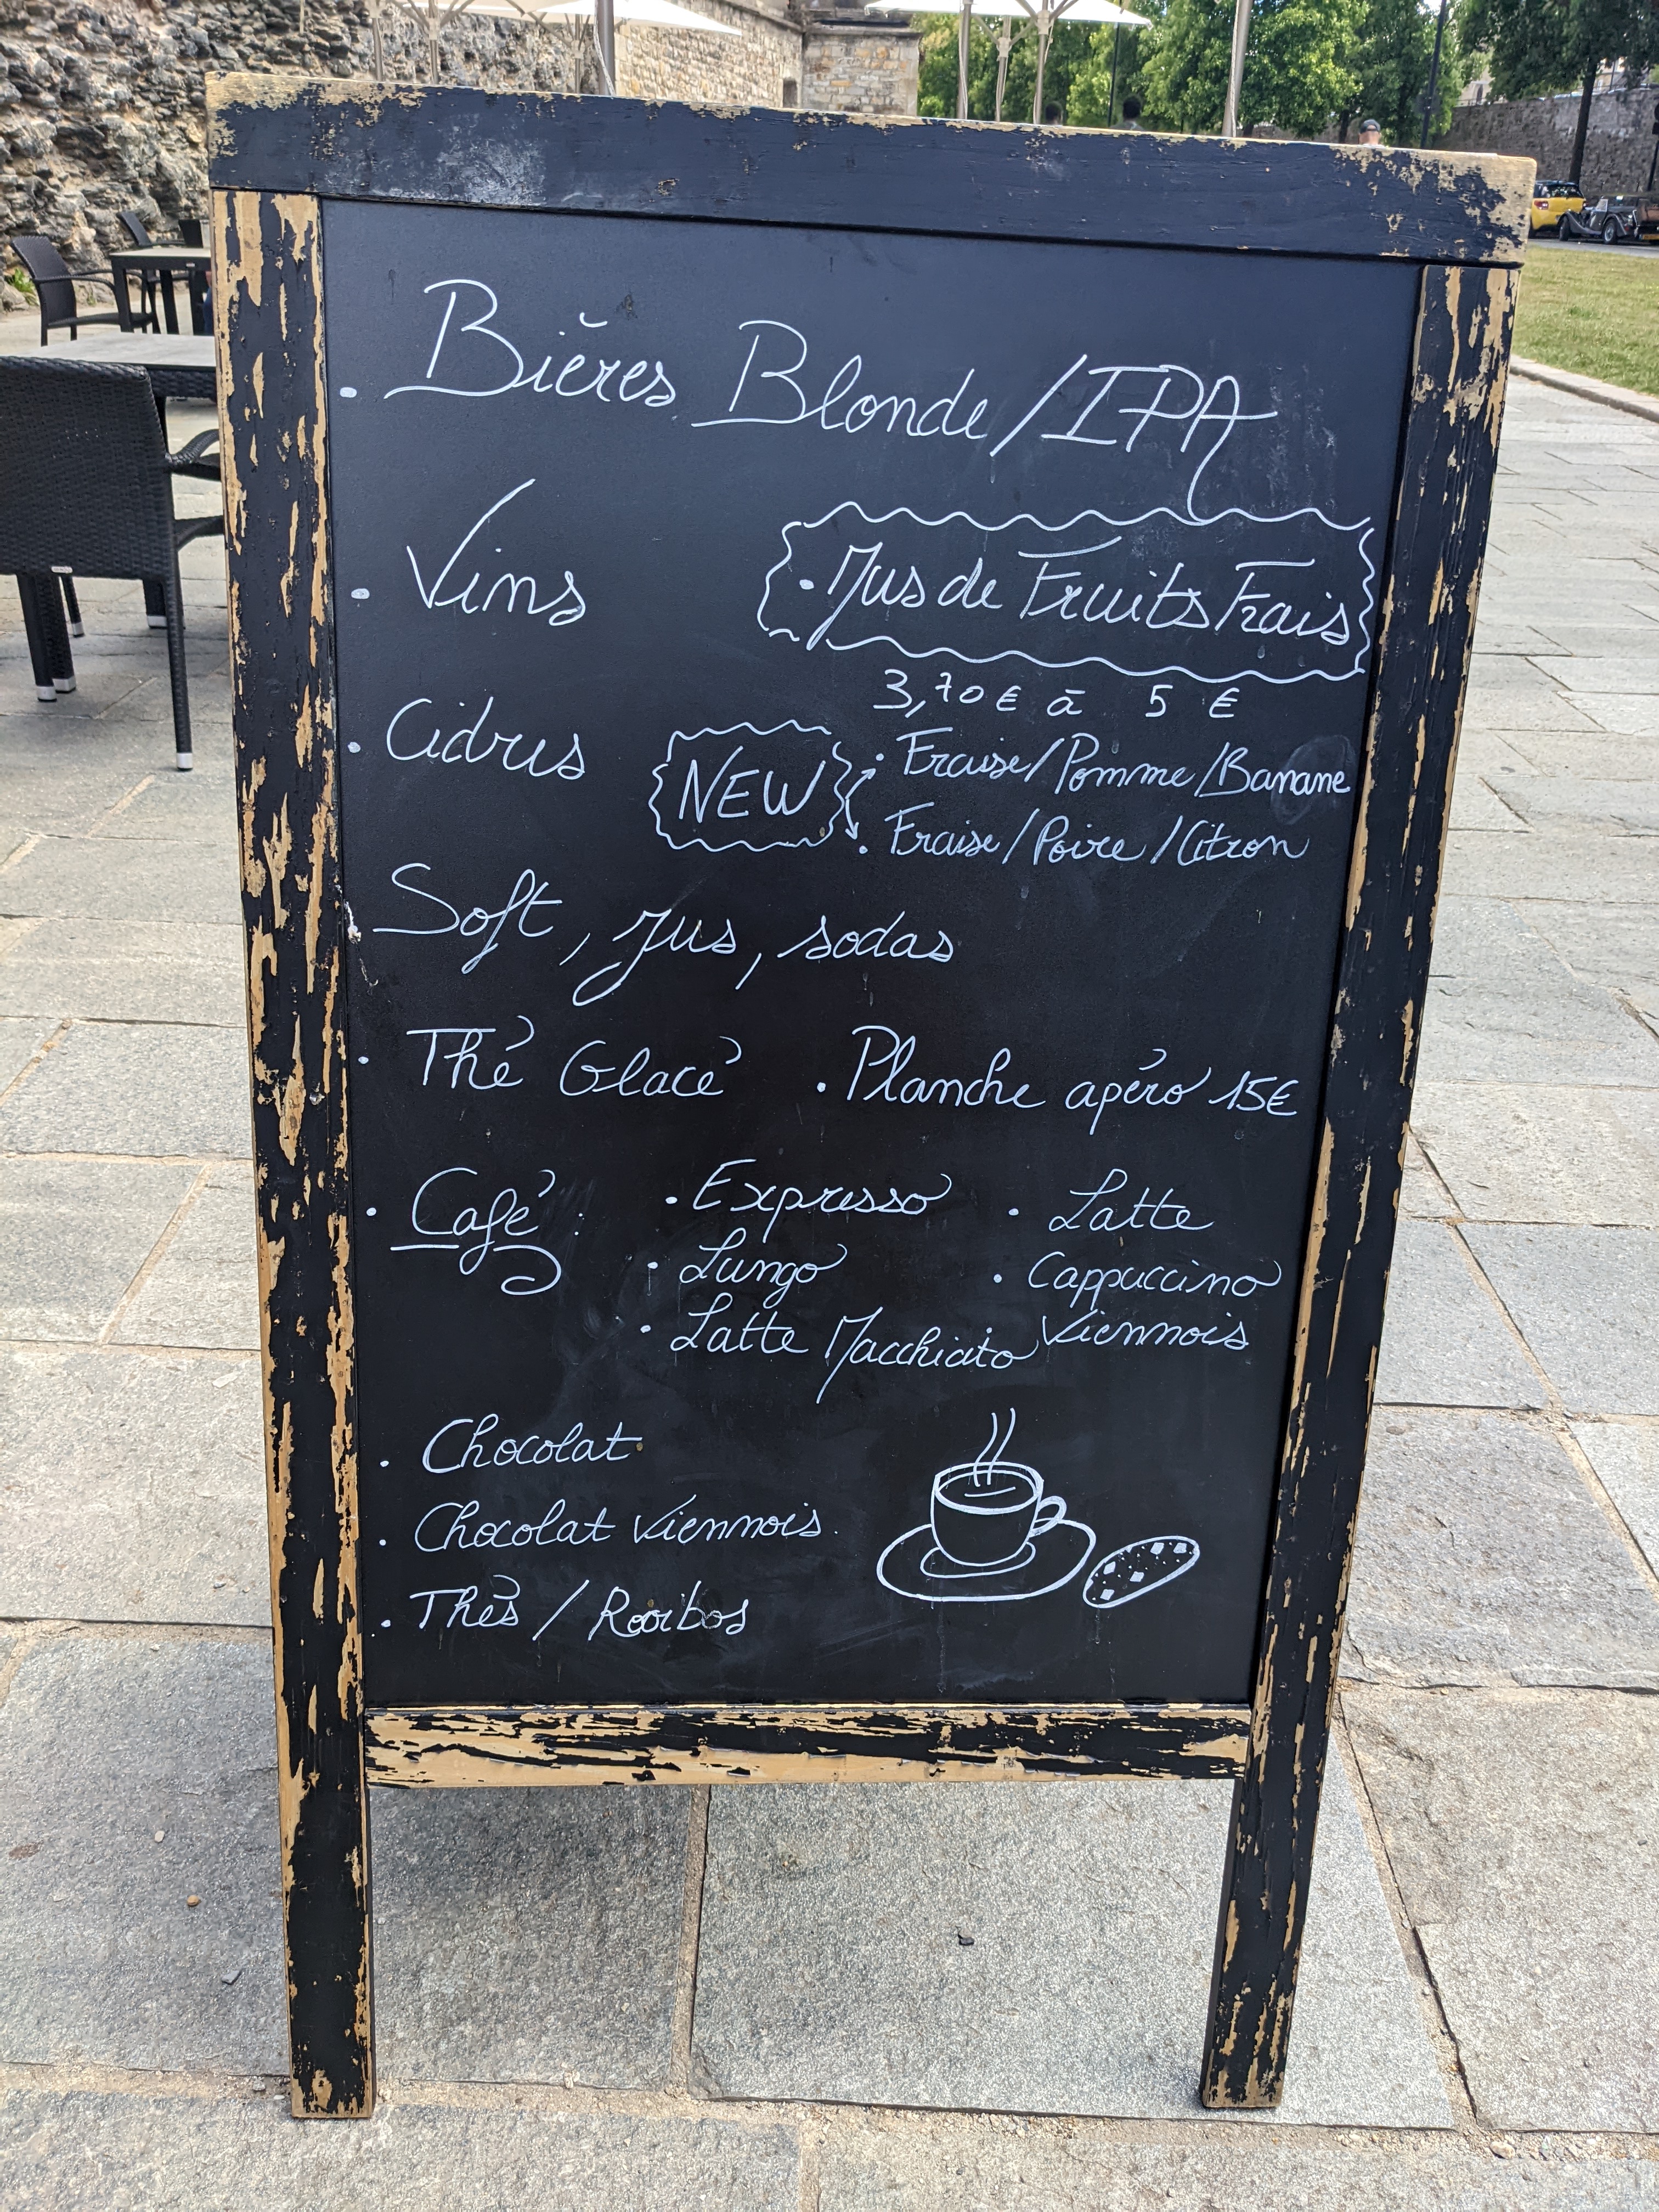 . Bières Blonde/IPA
. Vins
. Jus de Fruits Frais
3,70€ à 5 €
. Cidres
NEW
. Fraise/Pomme/Banane
. Fraise/Poire/Citron
Soft, jus, sodas
. Thé Glacé
. Planche apéro 15€
. Café :
. Expresso
. Latte
. Lungo
. Cappuccino
. Latte Macchiato
. Viennois
. Chocolat
. Chocolat Viennois.
. Thés / Rooibos